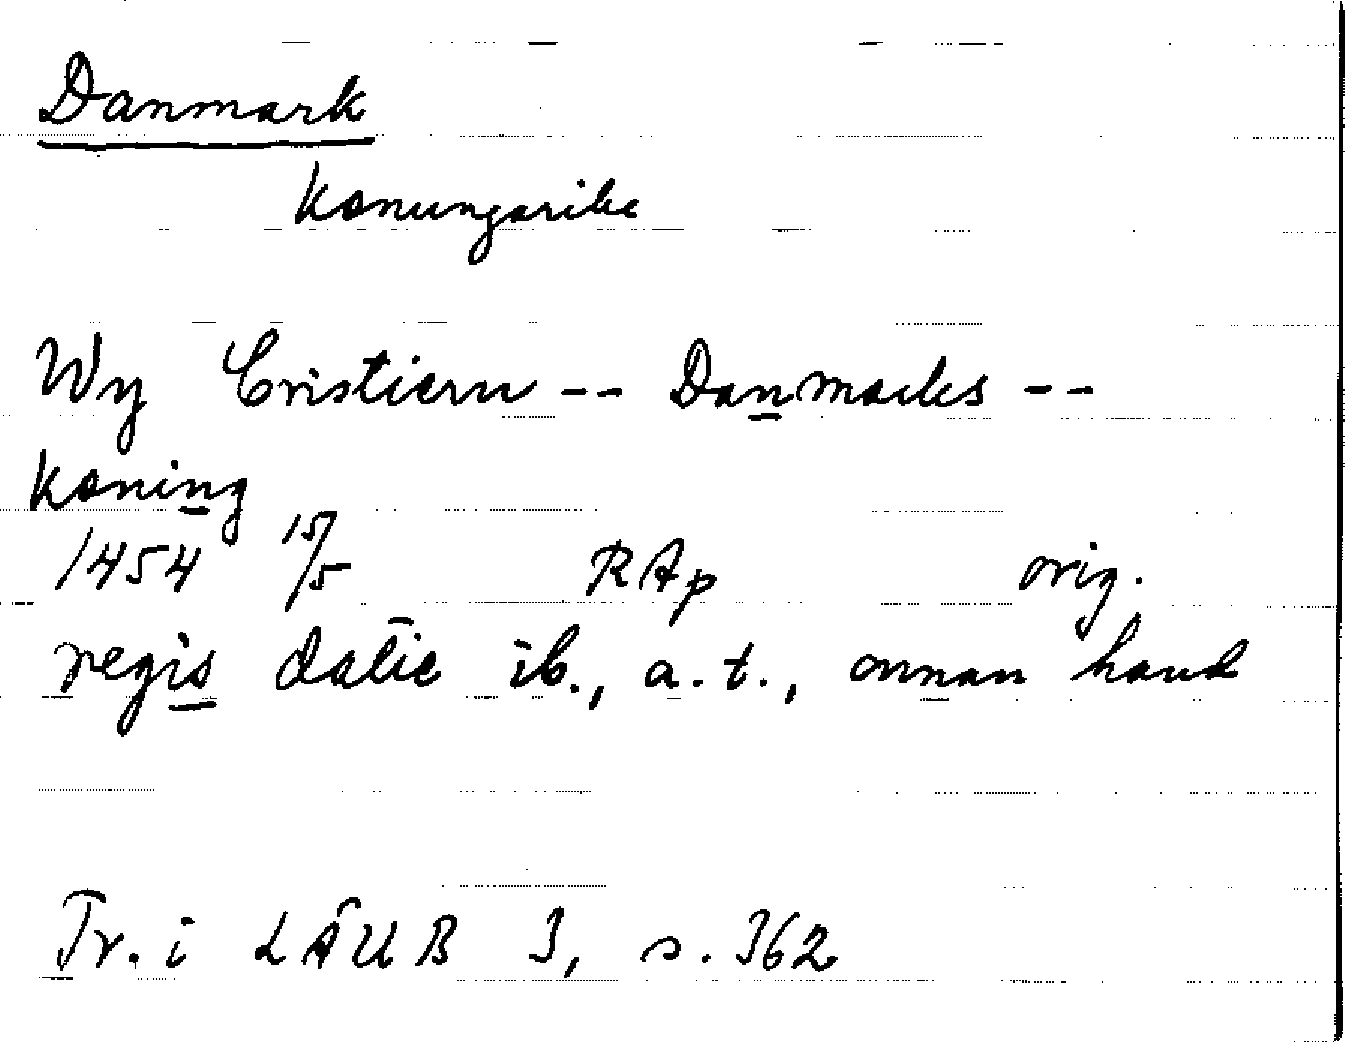 Danmark
konungarike
Wy Cristiern -- Danmarks --
koning
1454 15/5 RAp orig.
regis datīe ib., a.t., annan hand
Tr. i LÄUB 3, s. 362